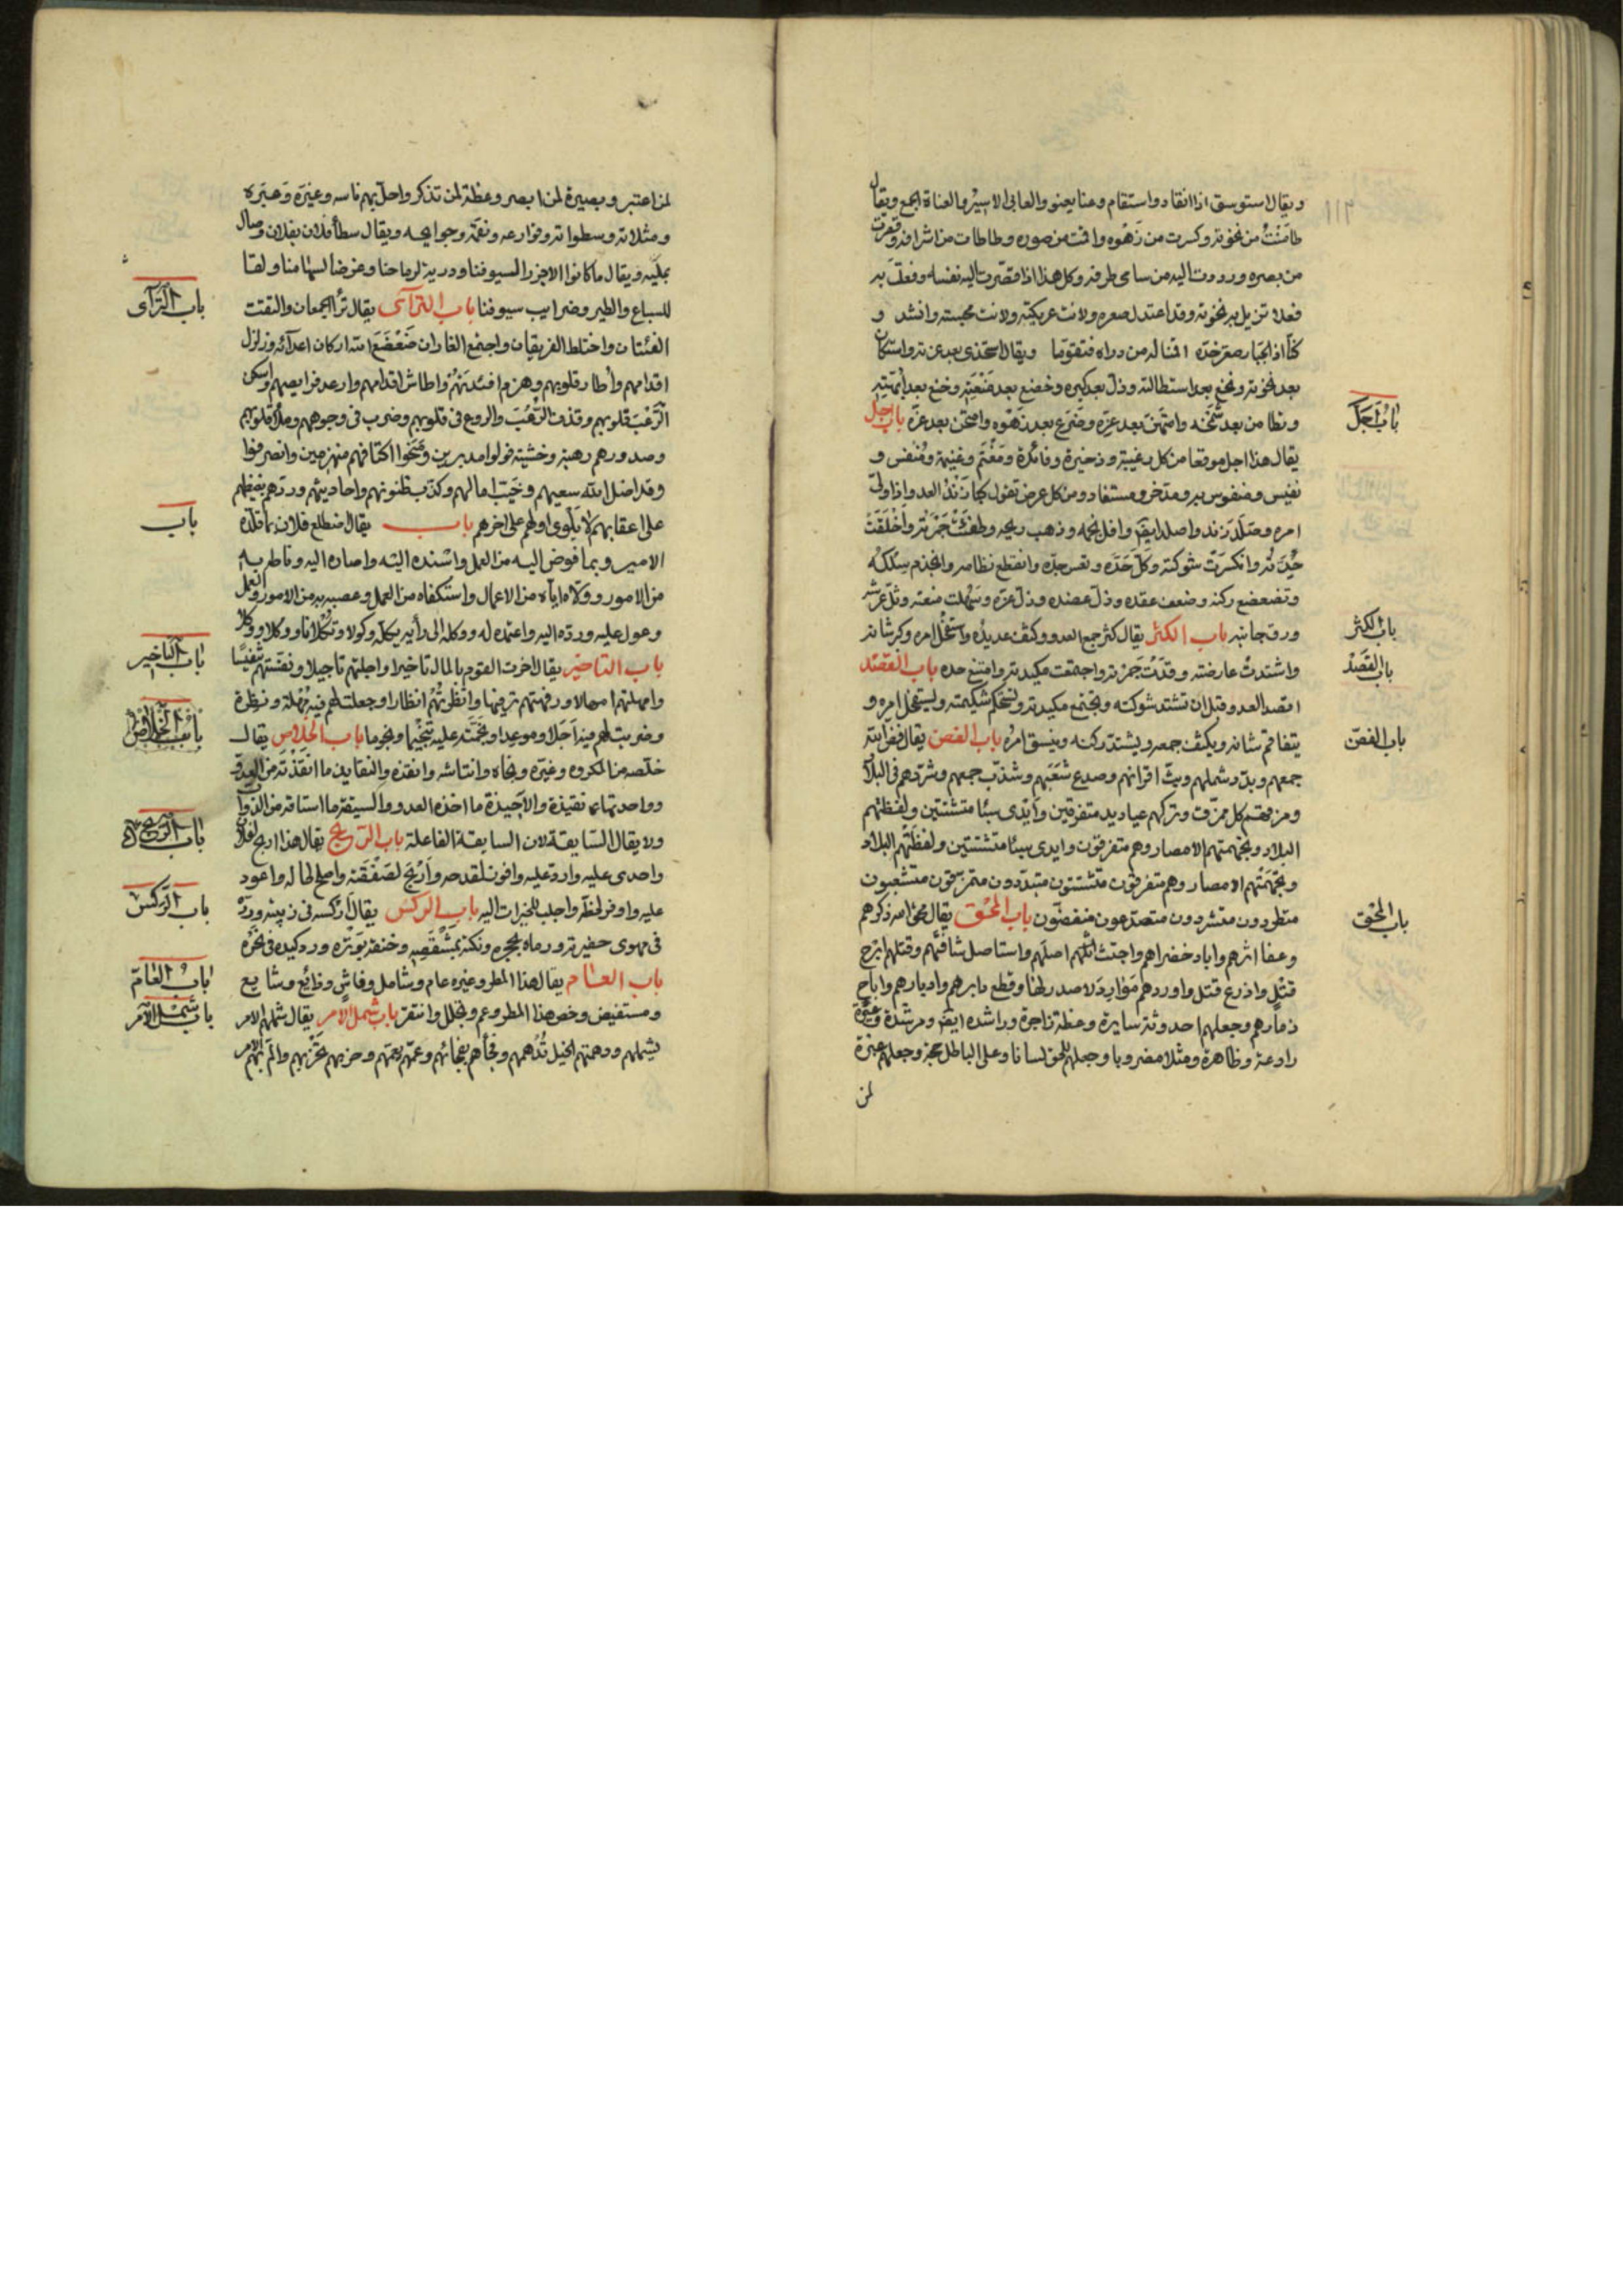 ويقال استوسق اذا انقاد واستقام وعنا يعنو والعاني الاسير والعناة الجمع ويقال
طامنت من نخوته وكسرت من زهوه واقمت من صوره وطاطات من اشرافه وقصرت
من بصره ورددت اليه من سامى طرفه وكل هذا اذا قصرت اليه نفسه وفعلت به
فعلا تزيل به نخوته وقد اعتدل صعره ولانت عريكته ولانت مجسته وانشد و
كنا اذا الجبار صعر خده اقمنا له من درأه فتقوما ويقال استخذى بعد عزته واستكان
بعد نخوته ونخع بعد استطالته وذل بعد كبره وخضع بعد منعته وخنع بعد ابهته
وتطامن بعد تشمخه وامتهن بعد عزه وضرع بعد زهوه وامتحن بعد عزة باب اجل
يقال هذا اجل موقعا من كل رغيبة وذخيرة وفائدة ومغنم وغنيمة ومنفس و
نفيس ومنفوس به ومدخر ومستفاد ومن كل عرض تقول كبا زند العدو اذا ولى
امره وصلد زنده واصلد ايضا وافل نجمه وذهب ريحه وطفئت جمرته واخلقت
جدته وانكسرت شوكته وكل حده وتعس جده وانقطع نظامه وانجذم سلكه
وتضعضع ركنه وضعف عقده وذل عضده وذل عزه وسهلت منعته وثل عرشه
ورق جانبه باب الكثر يقال كثر جمع العدو وكثف عديده واستفحل امره وكبر شانه
واشتدت عارضته وقدت جمرته واجتمعت مكيدته وامتنع حده باب القصد
اقصد العدو قبل ان تشتد شوكته وتجتمع مكيدته وتستحكم شكيمته ويستفحل امره و
يتفاقم شانه ويكثف جمعه ويشتد ركنه وينسق امره باب الفض يقال فض الله
جمعهم وبدد شملهم وبت اقرانهم وصدع شعبهم وشذب جمعهم وشردهم في البلاد
ومزقهم كل ممزق وتركهم عباديد متفرقين وايدى سبا متشتتين ولفظتهم
البلاد وتجهمتهم الامصار وهم متفرقون وايدى سبا متشتتين ولفظتهم البلاد
وتجهمتهم الامصار وهم متفرقون متشتتون متبددون متمزقون متشعبون
متطردون متشردون متصدعون منفضون باب المحق يقال محق الله ذكرهم
وعفا اثرهم واباد خضراهم واجتث اصلهم واستاصل شافتهم وقتلهم ابرح
قتل واذرع قتل واوردهم موارد لا صدر لها وقطع دابرهم وادبارهم واباح
ذمارهم وجعلهم احدوثة سايرة وعظة زاجرة وراشده ايضا ومرشدة وعبرة
رادعة وظاهرة ومثلا مضروبا وجعلهم للحق لسانا وعلى الباطل حجة وجعلهم عبرة
لمن
باب اجل
باب الكثر
باب القصد
باب الفض
باب المحق
لمن اعتبر وبصيرة لمن ابصر وعظة لمن تذكر واحل بهم باسه وغيره وعبره
ومثلاته وسطواته وقوارعه ونقمه وجوايحه ويقال سطا فلان بفلان وصال
عليه ويقال ما كانوا الا جزرا لسيوفنا ودرية لرماحنا وعرضا لسهامنا ولقا
للسباع والطير وضرايب سيوفنا باب الترآى يقال ترأا الجمعان والتقت
الفئتان واختلط الفريقان واجتمع الغاران ضعضع الله اركان اعدائه وزلزل
اقدامهم واطار قلوبهم وهزم افئدتهم واطاش اقدامهم وارعد فرايصهم واسكن
الرعب قلوبهم وقذف الرعب والروع في قلوبهم وضرب في وجوههم وملأ قلوبهم
وصدورهم رهبة وخشية فولوا مدبرين ومنحوا اكتافهم منهزمين وانصرفوا
وقد اضل الله سعيهم وخيب امالهم وكذب ظنونهم واحاديثهم وردهم بغيظهم
على اعقابهم لا يلوى اولهم على اخرهم باب يقال اضطلع فلان بما قلده
الامير وبما فوض اليه من العمل واسنده اليه واصاره اليه وناطه به
من الامور وولاه اياه من الاعمال واستكفاه من العمل وعصبه به من الامور والعمل
وعول عليه ورده اليه واعتمده له ووكله الى رأيه يكله وكولا وتكلانا ووكلا ووكلا
باب التاخير يقال اخرت القوم بالمال تاخيرا واجلتهم تاجيلا ونفستهم تنفيسا
وامهلتهم امهالا ورفهتهم ترفيها وانظرتهم انظارا وجعلت لهم فيه مهلة ونظرة
وضربت لهم فيه اجلا وموعدا ونجمته عليه تنجيما ونجوما باب الخلاص يقال
خلصه من المكروه وغيره ونجاه وانتاشه وانقذه والنقايذ ما انقذته من العدو
وواحدتها نقيذة والاخيذة ما اخذه العدو والسيقة ما استاقه من الدواب
ولا يقال السايقة لان السايقة الفاعلة باب الربح يقال هذا اربح لفلان
واجدى عليه وارد عليه وافوز لقدحه واربح لصفقته واصلح لحاله واعود
عليه واوفر لحظه واجلب للخيرات اليه باب الركس يقال اركسه في زبيته ورده
في مهوى حفيرته ورماه بحجره ونكزه بمشقصه وخنقه بوتره ورد كيده في نحره
باب العام يقال هذا المطر وغيره عام وشامل وفاش وذائع وشايع
ومستفيض وخص هذا المطر وعم وتجلل وانتقر باب شمل الامر يقال شملهم الامر
يشملهم ودهمتهم الخيل تدهمهم وفجأهم يفجأهم وعمهم يعمهم وحزبهم يحزبهم والم بهم الامر
باب الترآى
باب
باب التاخير
باب الخلاص
باب الربح
باب الركس
باب العام
باب شمل الامر